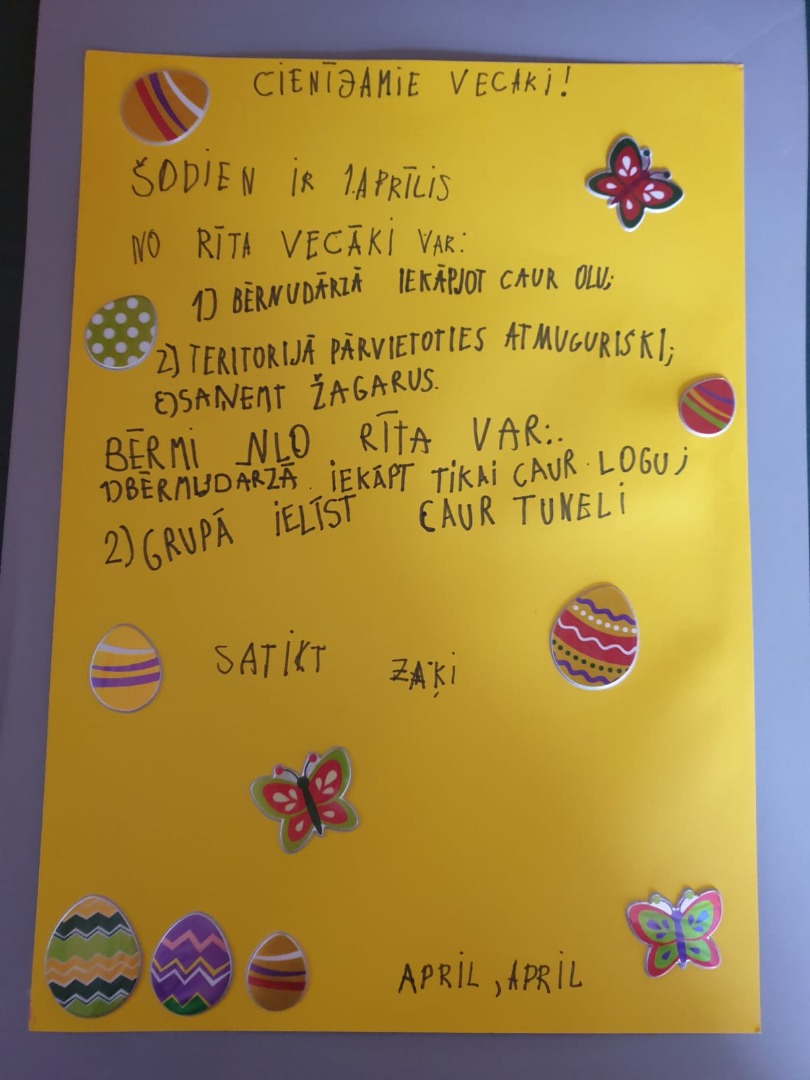 CIENĪJAMIE VECAKI!
ŠODIEN IR 1.APRĪLIS
NO RĪTA VECĀKI VAR:
1) BĒRNUDĀRZĀ IEKĀPJOT CAUR OLU;
2) TERITORIJĀ PĀRVIETOTIES ATMUGURISKI;
3) SAŅEMT ŽAGARUS.
BĒRMI NLO RĪTA VAR:.
1)BĒRMUDARZĀ. IEKĀPT TIKAI CAUR LOGU;
2) GRUPĀ IELĪST CAUR TUNELI
SATIKT ZAĶI
APRIL, APRIL